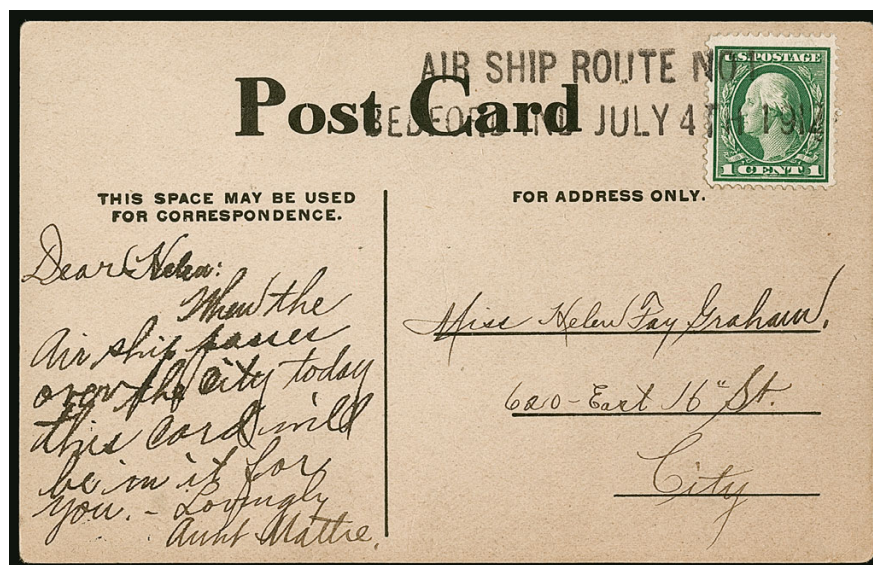 AIR SHIP ROUTE NO 1
Post Card
BEDFORD IND JULY 4TH 1912
U.S. POSTAGE
1 CENT 1
THIS SPACE MAY BE USED
FOR CORRESPONDENCE.
FOR ADDRESS ONLY.
Dear Helen:
When the
Air ship passes
over the city today
this card will
be in it for
you. - Lovingly
Aunt Mattie.
Miss Helen Fay Graham,
620 - East 16" St.
City